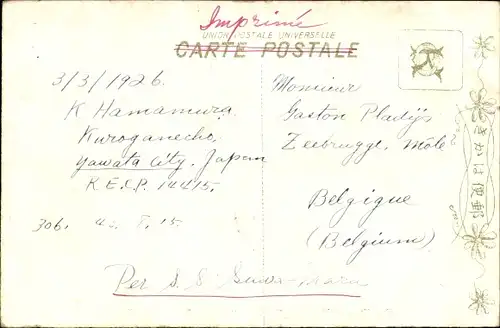 Imprimé
UNION POSTALE UNIVERSELLE
CARTE POSTALE
3/3/1926.
K Hamamura
Kuroganecho,
Yawata City. Japan
R.E.C.P. 14415.
306.
Monsieur
Gaston Pladijs
Zeebrugge. Môle
Belgique
(Belgium)
Per S. S. Suwa-Maru
きがは便郵